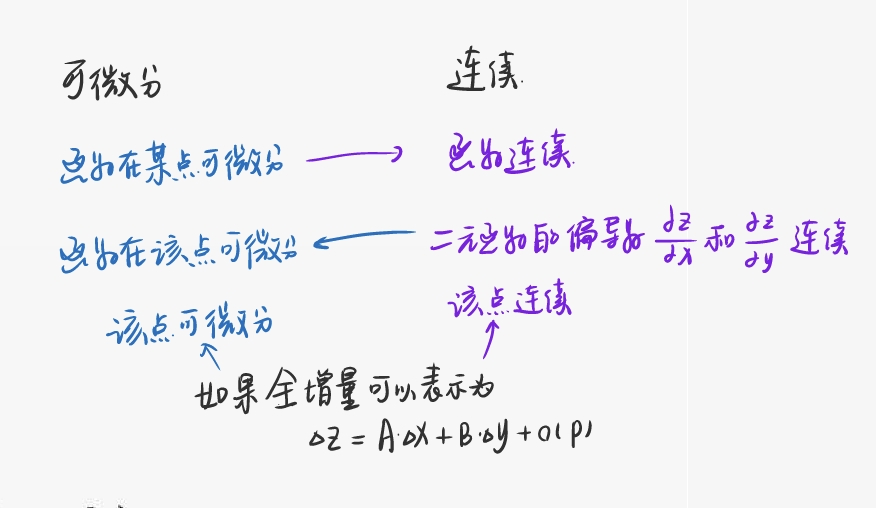 可微分 连续.
函数在某点可微分 → 函数连续.
函数在该点可微分 ← 二元函数的偏导数 ∂z/∂x 和 ∂z/∂y 连续
该点可微分 该点连续
如果全增量可以表示为
Δz = A·Δx + B·Δy + o(ρ)